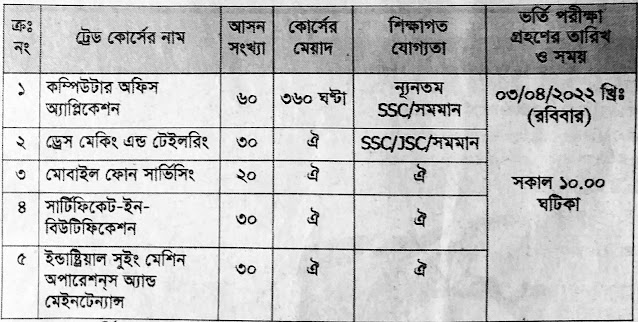 ক্রঃ নং | ট্রেড কোর্সের নাম | আসন সংখ্যা | কোর্সের মেয়াদ | শিক্ষাগত যোগ্যতা | ভর্তি পরীক্ষা গ্রহণের তারিখ ও সময়
১ | কম্পিউটার অফিস অ্যাপ্লিকেশন | ৬০ | ৩৬০ ঘন্টা | ন্যূনতম SSC/সমমান | ০৩/০৪/২০২২ খ্রিঃ (রবিবার)
২ | ড্রেস মেকিং এন্ড টেইলরিং | ৩০ | ঐ | SSC/JSC/সমমান
৩ | মোবাইল ফোন সার্ভিসিং | ২০ | ঐ | ঐ | সকাল ১০.০০ ঘটিকা
৪ | সার্টিফিকেট-ইন-বিউটিফিকেশন | ৩০ | ঐ | ঐ
৫ | ইন্ডাষ্ট্রিয়াল সুইং মেশিন অপারেশন্স অ্যান্ড মেইনটেন্যান্স | ৩০ | ঐ | ঐ